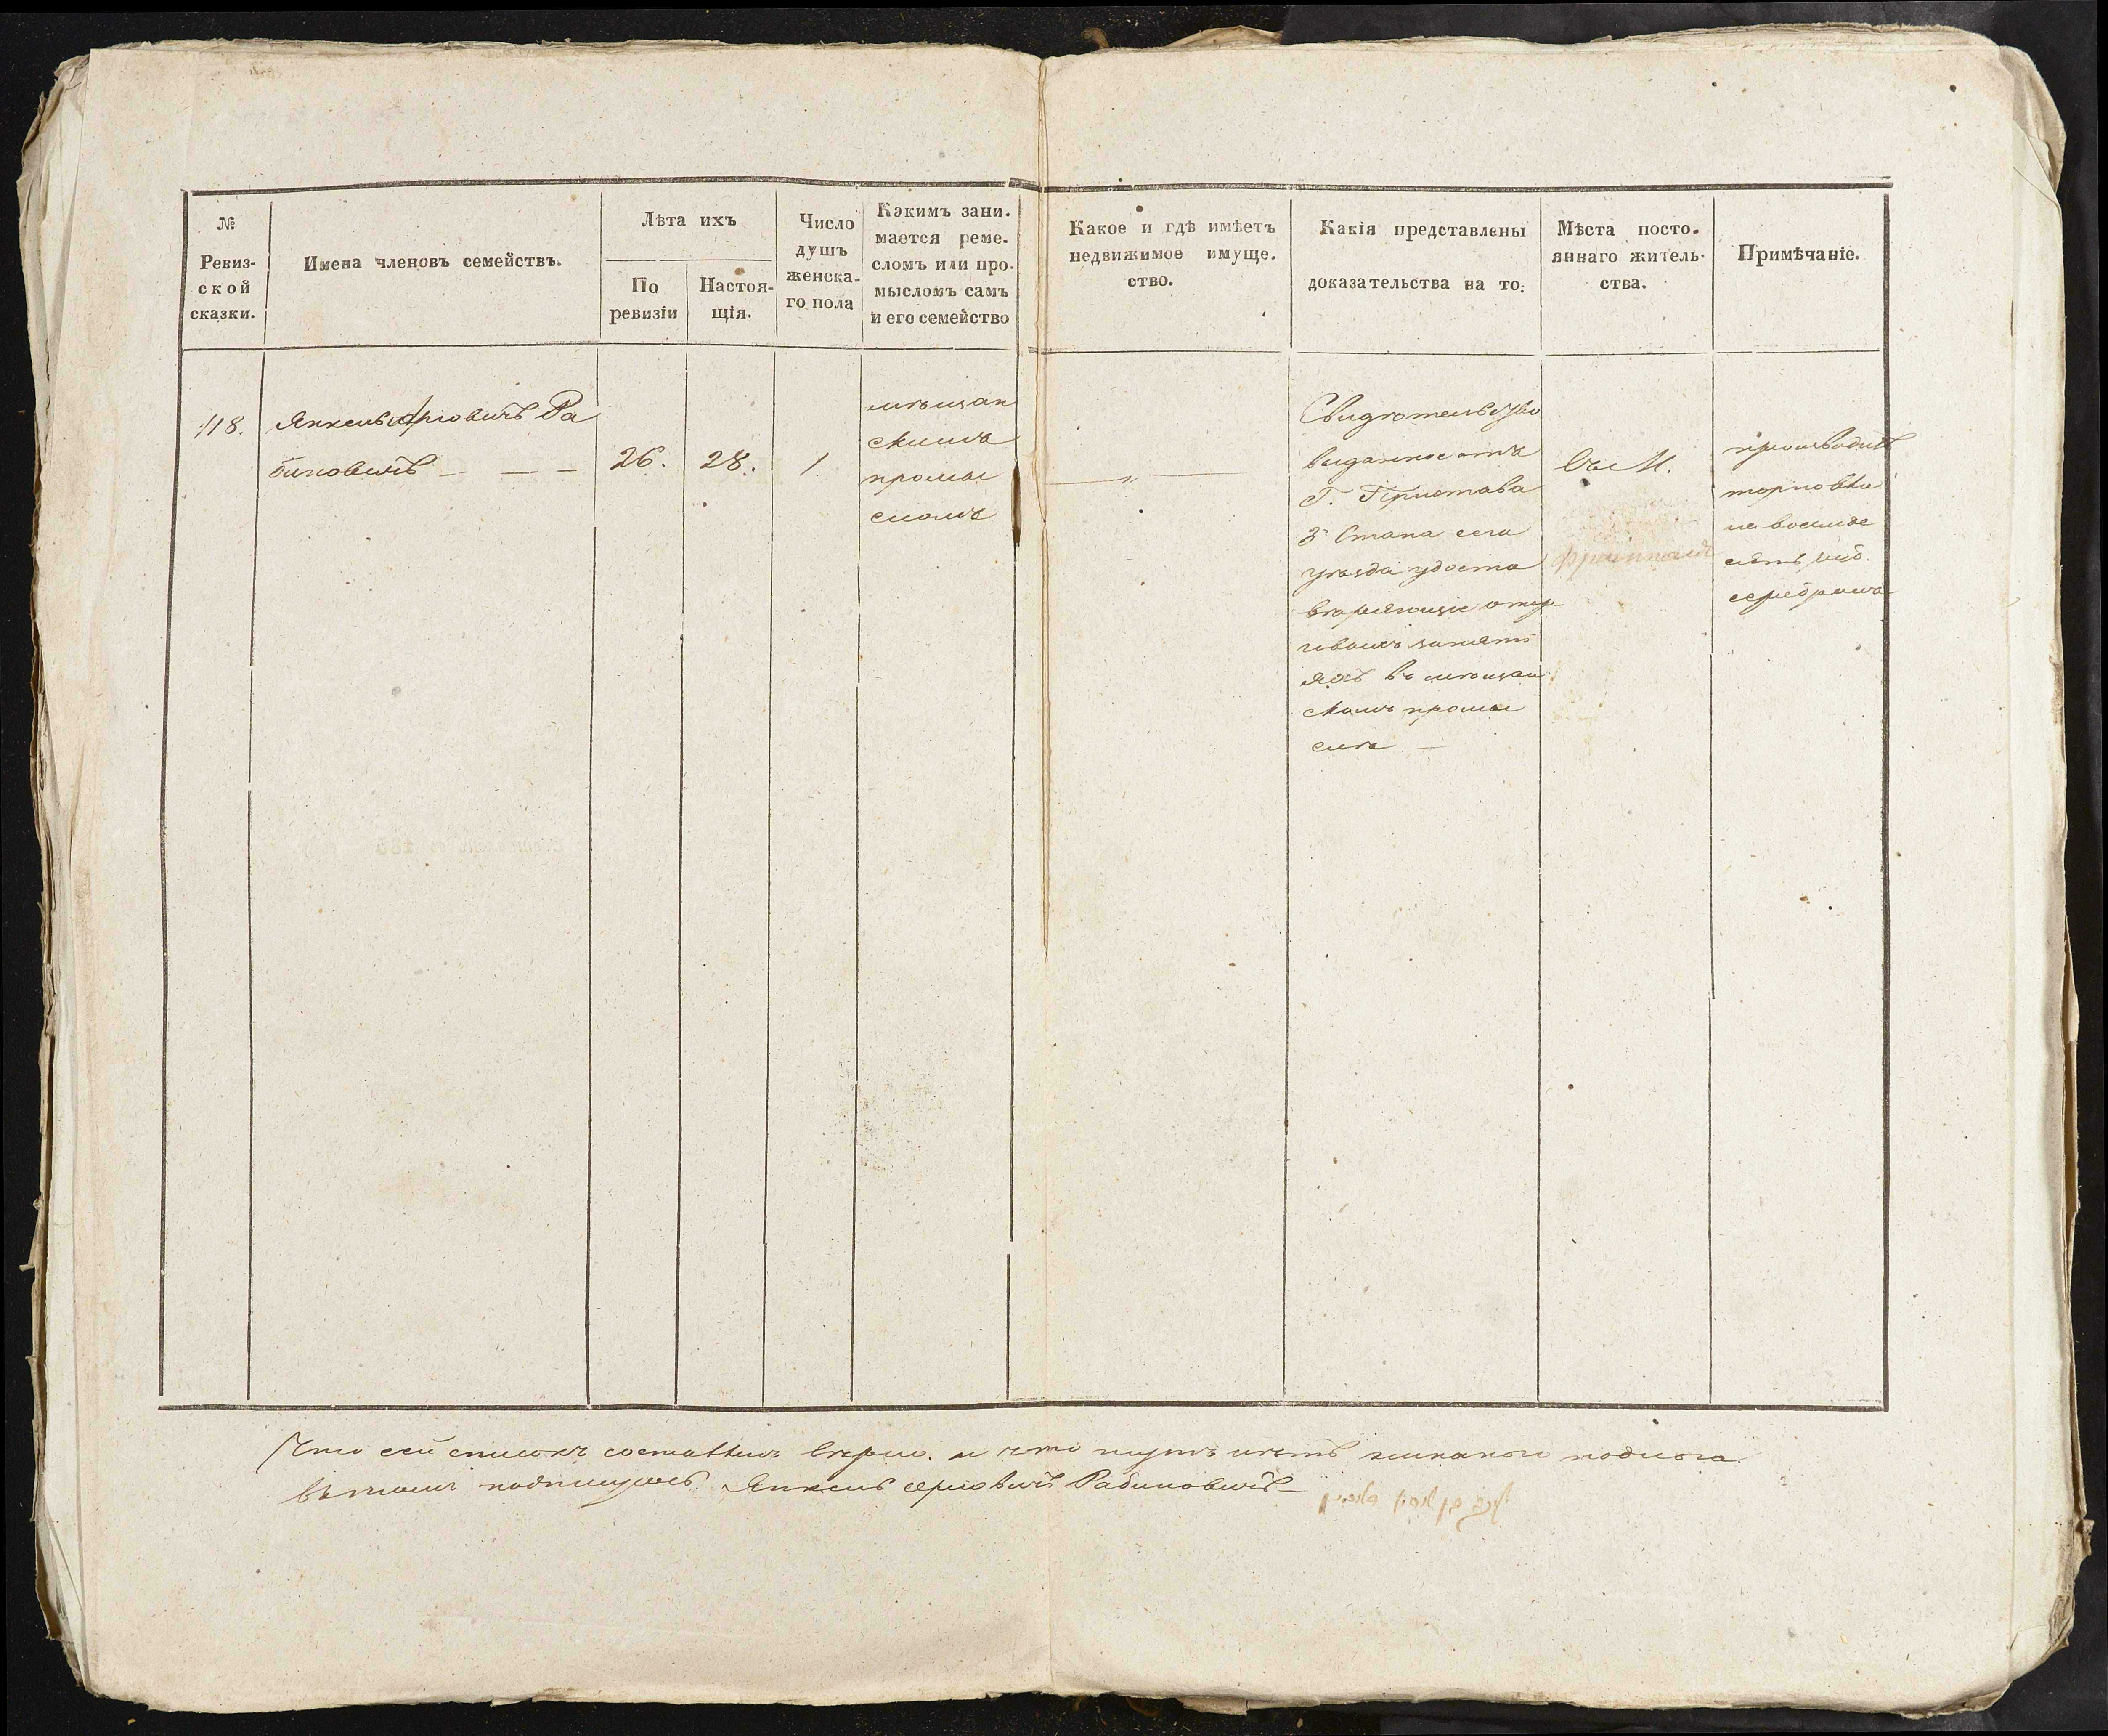 №
Ревиз-
ской
сказки.
Имена членовъ семействъ.
Лѣта ихъ
По
ревизіи
Настоя-
щія.
Число
душъ
женска-
го пола
Какимъ зани-
мается реме-
сломъ или про-
мысломъ самъ
и его семейство
Какое и гдѣ имѣетъ
недвижимое имуще-
ство.
Какія представлены
доказательства на то:
Мѣста посто-
яннаго житель-
ства.
Примѣчаніе.
118.
Янкель Аріовичъ Ра
биновичъ — — —
26.
28.
1
мѣщан
скимъ
промы
сломъ
— „ —
Свидѣтельство
выданное отъ
Г. Пристава
3 Стана сего
уѣзда удосто
вѣряющіе
заняті
яхъ въ мѣщан
скомъ промы
слѣ —
въ М.
производитъ
торговли
на восемде
сятъ руб.
серебромъ
Что сей списокъ составленъ вѣрно. и что нутъ нѣтъ никакого подлога
въ томъ подпишусь Янкель Аріовичъ Рабиновичъ —